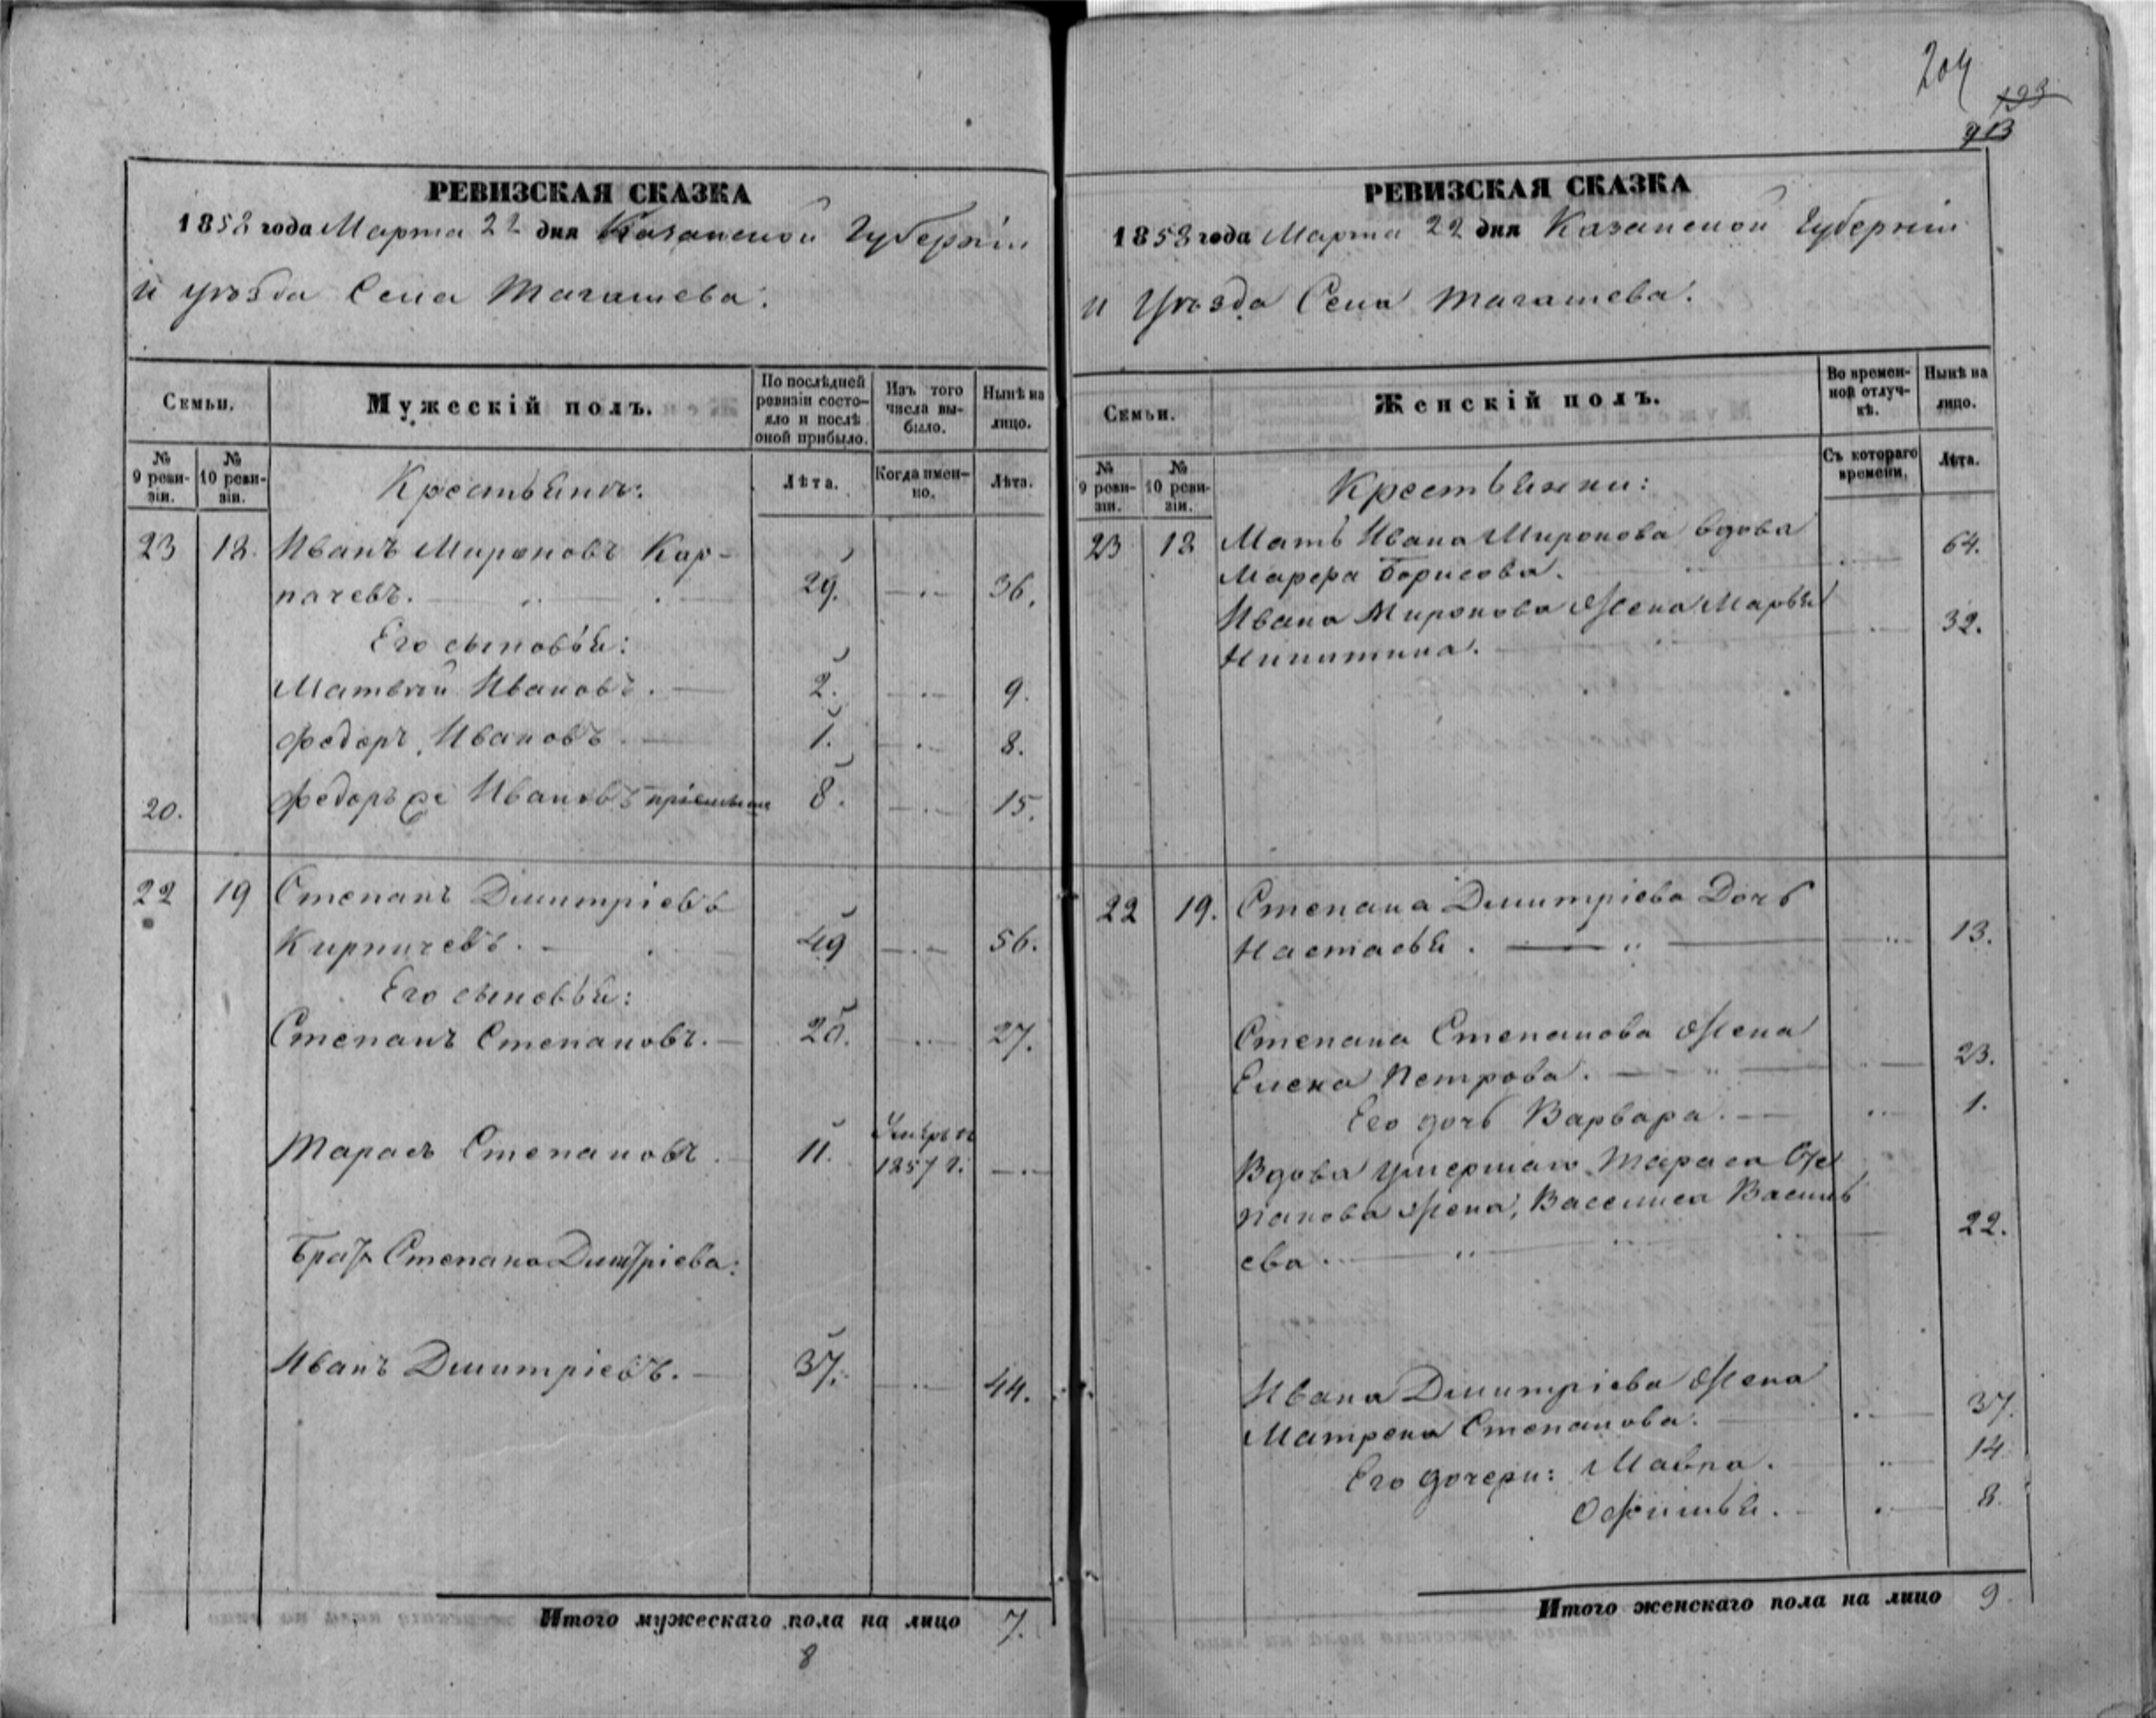 204
193
РЕВИЗСКАЯ СКАЗКА
1858 года Марта 22 дня Казанской Губерніи
и уѣзда Села Тагашева.
Семьи.
Мужескій полъ.
По послѣдней ревизіи состояло и послѣ оной прибыло.
Изъ того числа выбыло.
Нынѣ на лицо.
№ 9 ревизіи.
№ 10 ревизіи.
Крестьянъ:
Лѣта.
Когда именно.
Лѣта.
23 18. Иванъ Мироновъ Кар-
пачевъ. 29. 36.
Его сыновья:
Матвѣй Ивановъ. 2. 9.
Федоръ Ивановъ. 1. 8.
20. Федоръ же Ивановъ пріемышъ 8. 15.
22 19 Степанъ Димитріевъ
Кирпичевъ. 49 56.
Его сыновья:
Степанъ Степановъ. 20. 27.
Тарасъ Степановъ. 11. Умеръ въ 1857 г.
Братъ Степана Димитріева:
Иванъ Димитріевъ. 37. 44.
Итого мужескаго пола на лицо 7.
8
РЕВИЗСКАЯ СКАЗКА
1858 года Марта 22 дня Казанской Губерніи
и Уѣзда Села Тагашева.
Семьи.
Женскій полъ.
Во временной отлучкѣ.
Нынѣ на лицо.
№ 9 ревизіи.
№ 10 ревизіи.
Крестьянки:
Съ котораго времени.
Лѣта.
23 18 Мать Ивана Миронова вдова
Марфа Борисова. 64.
Ивана Миронова Жена Марья
Никитина. 32.
22 19. Степана Димитріева Дочь
Настасья. 13.
Степана Степанова Жена
Елена Петрова. 23.
Его дочь Варвара. 1.
Вдова умершаго Тараса Сте
панова жена, Васелиса Василь
ева. 22.
Ивана Димитріева Жена
Матрена Степанова. 37.
Его дочери: Мавра. 14.
Офимья. 8.
Итого женскаго пола на лицо 9.